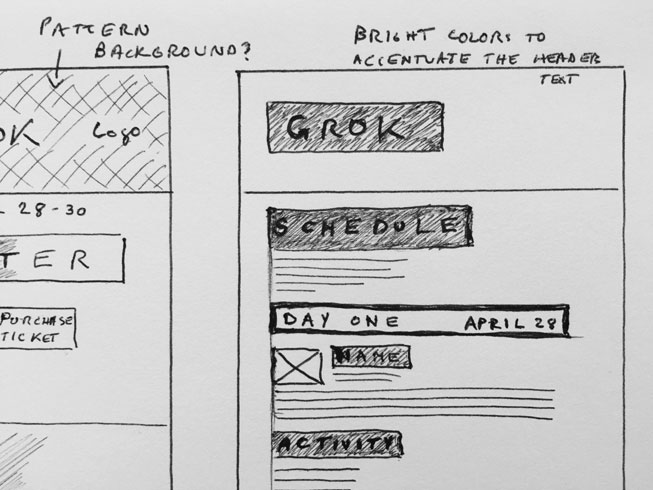 PATTERN
BACKGROUND?
OK
Logo
28-30
TER
PURCHASE
TICKET
BRIGHT COLORS TO
ACCENTUATE THE HEADER
TEXT
GROK
SCHEDULE
DAY ONE APRIL 28
NAME
ACTIVITY